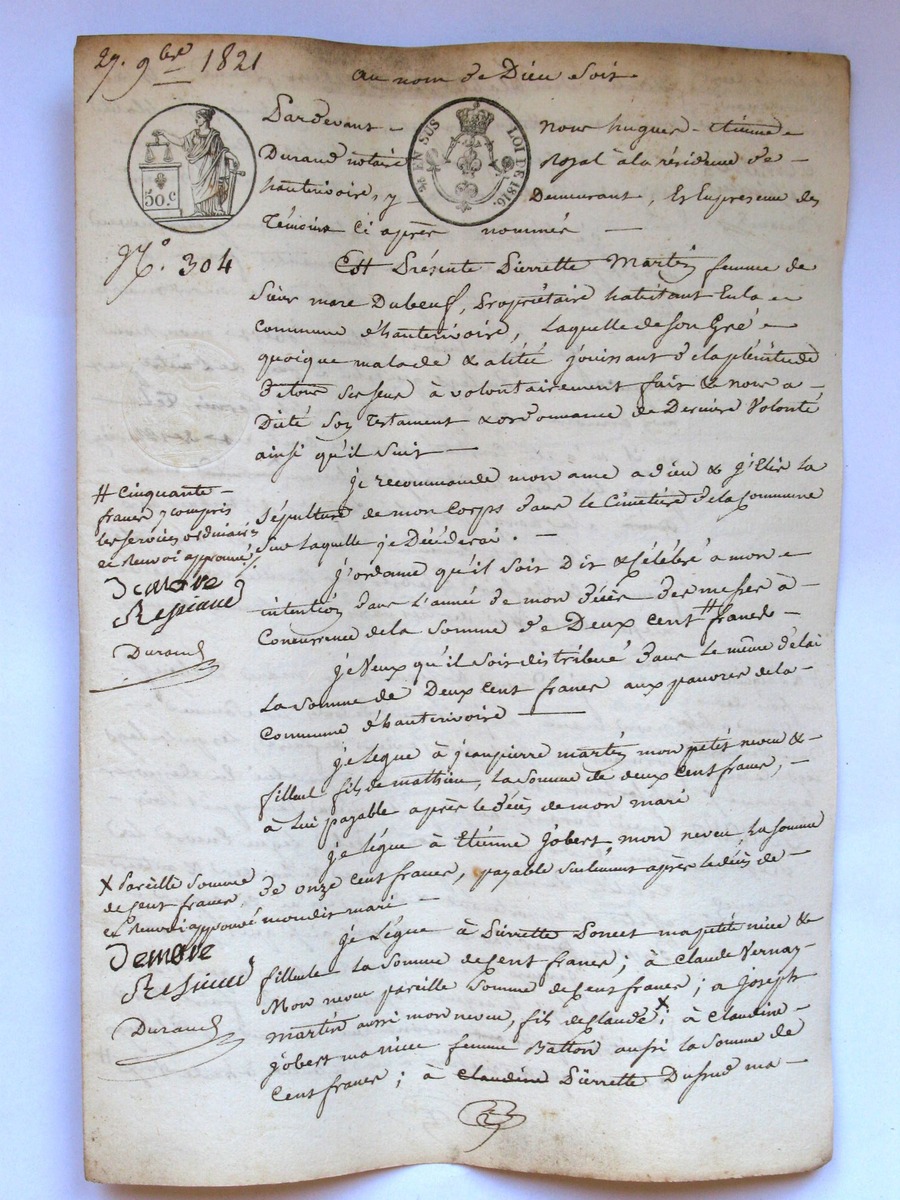 27. 9bre 1821
au nom de Dieu soit
Pardevant - nous hugues - etienne
Durand notaire royal à la résidence de -
hauterivoire, y - Demeurant, & En presence des
Témoins Ci après nommés —
50. c
EN SUS
LOI DE 1816
No. 304
Est Présente Pierrette Martin femme de
Sieur marc Dubeuf, Propriétaire habitant En la
Commune d'hauterivoire, Laquelle de son Gré
quoique malade & alitée jouissant de la plénitude
de tous ses sens à volontairement fait & nous a -
Dicté son Testament & ordonnance de Derniere Volonté
ainsi qu'il suit —
je recommande mon ame a dieu & j'Elis La
Sépulture de mon Corps dans le Cimetière de la Commune
Sur Laquelle je Décéderai. —
# Cinquante -
francs y compris
les services ordinaires
ce Renvoi approuvé
Durand
j'ordonne qu'il soit Dit & Célébré a mon
intention dans L'année de mon décès des messes à -
Concurrence de la Somme de Deux Cent # francs -
je Veux qu'il soit distribué dans Le même délai
La somme de Deux cent francs aux pauvres de la -
Commune d'hauterivoire —
je Legue à jean pierre martin mon petit neveu & -
filleul fils de mathieu, La somme de deux Cent francs, -
à Lui payable après le décès de mon mari
je Légue à Etienne Jobert mon neveu La somme
de onze cent francs, payable seulement après le décès de -
mondit mari —
X Pareille Somme
de Cent francs
ce Renvoi approuvé
Durand
je Légue à Pierrette Poncet ma petite niece &
filleule La somme de Cent francs; à Claude Vernay
Mon neveu pareille Somme de Cent francs; a Joseph
martin aussi mon neveu, fils de Claude X; à Claudine -
Jobert ma niece femme Batton aussi La Somme de
Cent francs; à Claudine Pierrette ma -